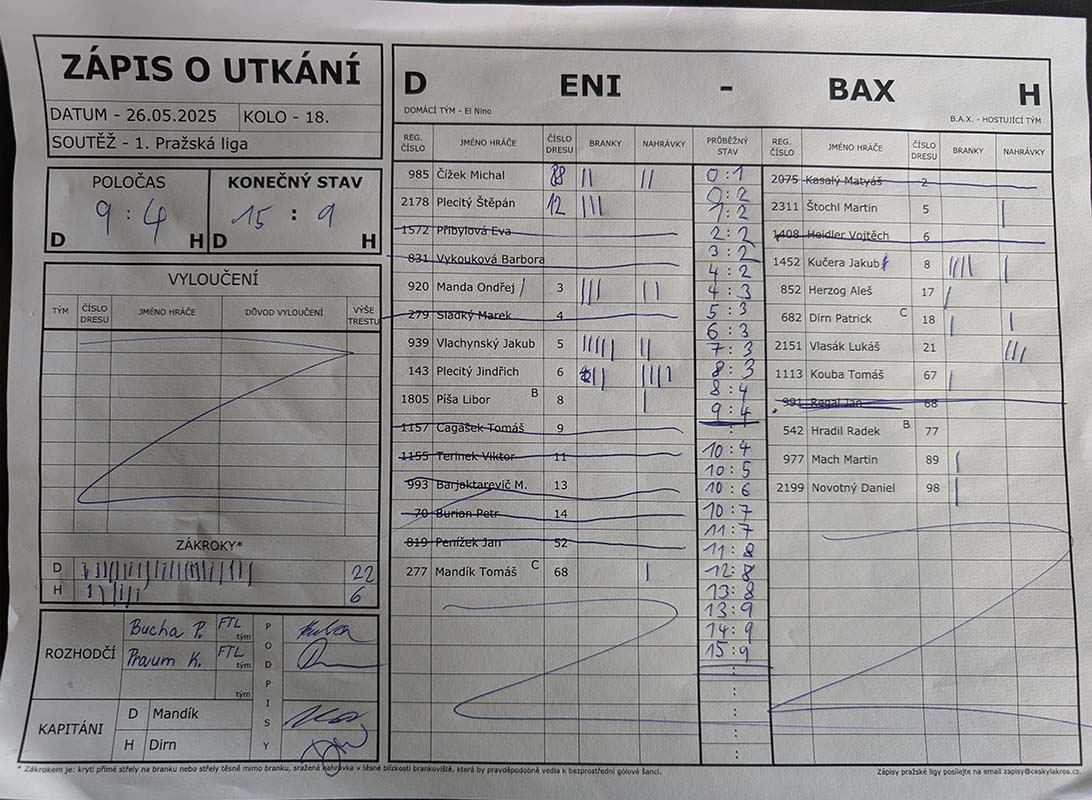 ZÁPIS O UTKÁNÍ
DATUM - 26.05.2025 KOLO - 18.
SOUTĚŽ - 1. Pražská liga
POLOČAS KONEČNÝ STAV
9 : 4 15 : 9
D H D H
VYLOUČENÍ
TÝM ČÍSLO DRESU JMÉNO HRÁČE DŮVOD VYLOUČENÍ VÝŠE TRESTU
ZÁKROKY*
D 22
H 6
ROZHODČÍ
Bucha P. FTL tým
Praum K. FTL tým
tým
PODPISY
KAPITÁNI
D Mandík
H Dirn
D ENI - BAX H
DOMÁCÍ TÝM - El Nino B.A.X. - HOSTUJÍCÍ TÝM
REG. ČÍSLO JMÉNO HRÁČE ČÍSLO DRESU BRANKY NAHRÁVKY PRŮBĚŽNÝ STAV REG. ČÍSLO JMÉNO HRÁČE ČÍSLO DRESU BRANKY NAHRÁVKY
985 Čížek Michal 88 || ||
2178 Plecitý Štěpán 12 |||
1572 Přibylová Eva
831 Vykouková Barbora
920 Manda Ondřej 3 ||| ||
279 Sladký Marek 4
939 Vlachynský Jakub 5 ||||| ||
143 Plecitý Jindřich 6 ||||
1805 Píša Libor B 8 |
1157 Cagášek Tomáš 9
1155 Terinek Viktor 11
993 Barjaktarevič M. 13
70 Burian Petr 14
819 Penížek Jan 52
277 Mandík Tomáš C 68 |
0 : 1
0 : 2
1 : 2
2 : 2
3 : 2
4 : 2
4 : 3
5 : 3
6 : 3
7 : 3
8 : 3
8 : 4
9 : 4
:
10 : 4
10 : 5
10 : 6
10 : 7
11 : 7
11 : 8
12 : 8
13 : 8
13 : 9
14 : 9
15 : 9
:
:
:
:
2075 Kasalý Matyáš 2
2311 Štochl Martin 5 |
1408 Heidler Vojtěch 6
1452 Kučera Jakub 8 |||| |
852 Herzog Aleš 17 |
682 Dirn Patrick C 18 | |
2151 Vlasák Lukáš 21 |||
1113 Kouba Tomáš 67 |
991 Regal Jan 68
542 Hradil Radek B 77
977 Mach Martin 89 |
2199 Novotný Daniel 98 |
* Zákrokem je: krytí přímé střely na branku nebo střely těsně mimo branku, sražená nahrávka v těsné blízkosti brankoviště, která by pravděpodobně vedla k bezprostřední gólové šanci.
Zápisy pražské ligy posílejte na email zapisy@ceskylakros.cz